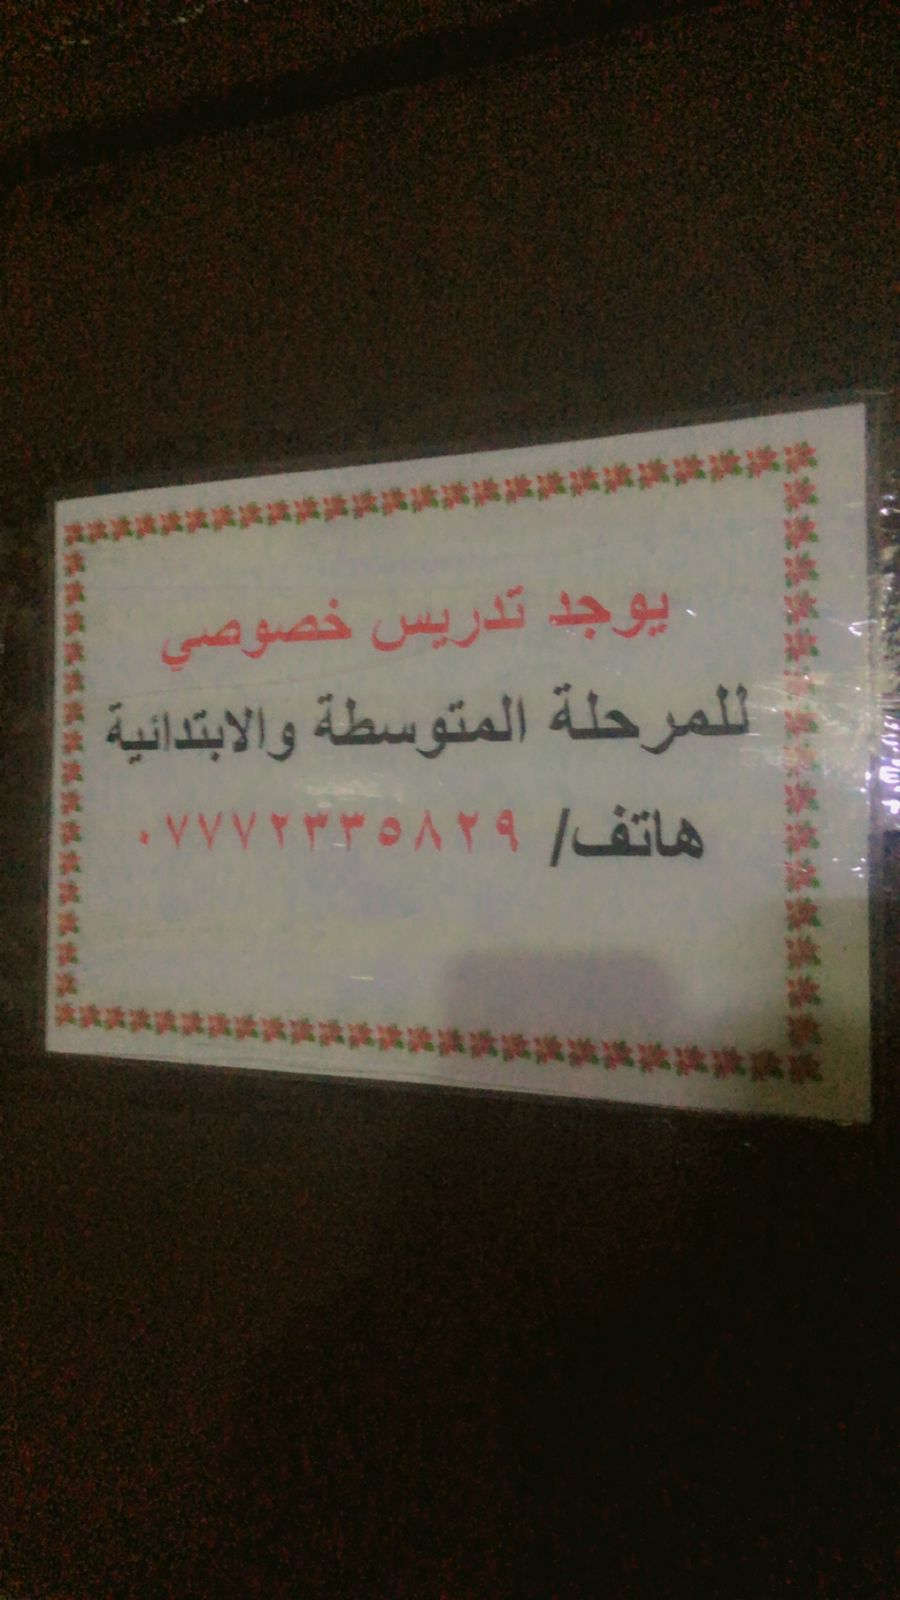 يوجد تدريس خصوصي
للمرحلة المتوسطة والابتدائية
هاتف/ ٠٧٧٧٢٣٣٥٨٢٩